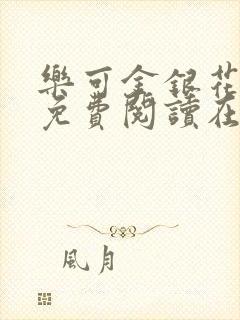 樂可金銀花
免費閱讀在
風月